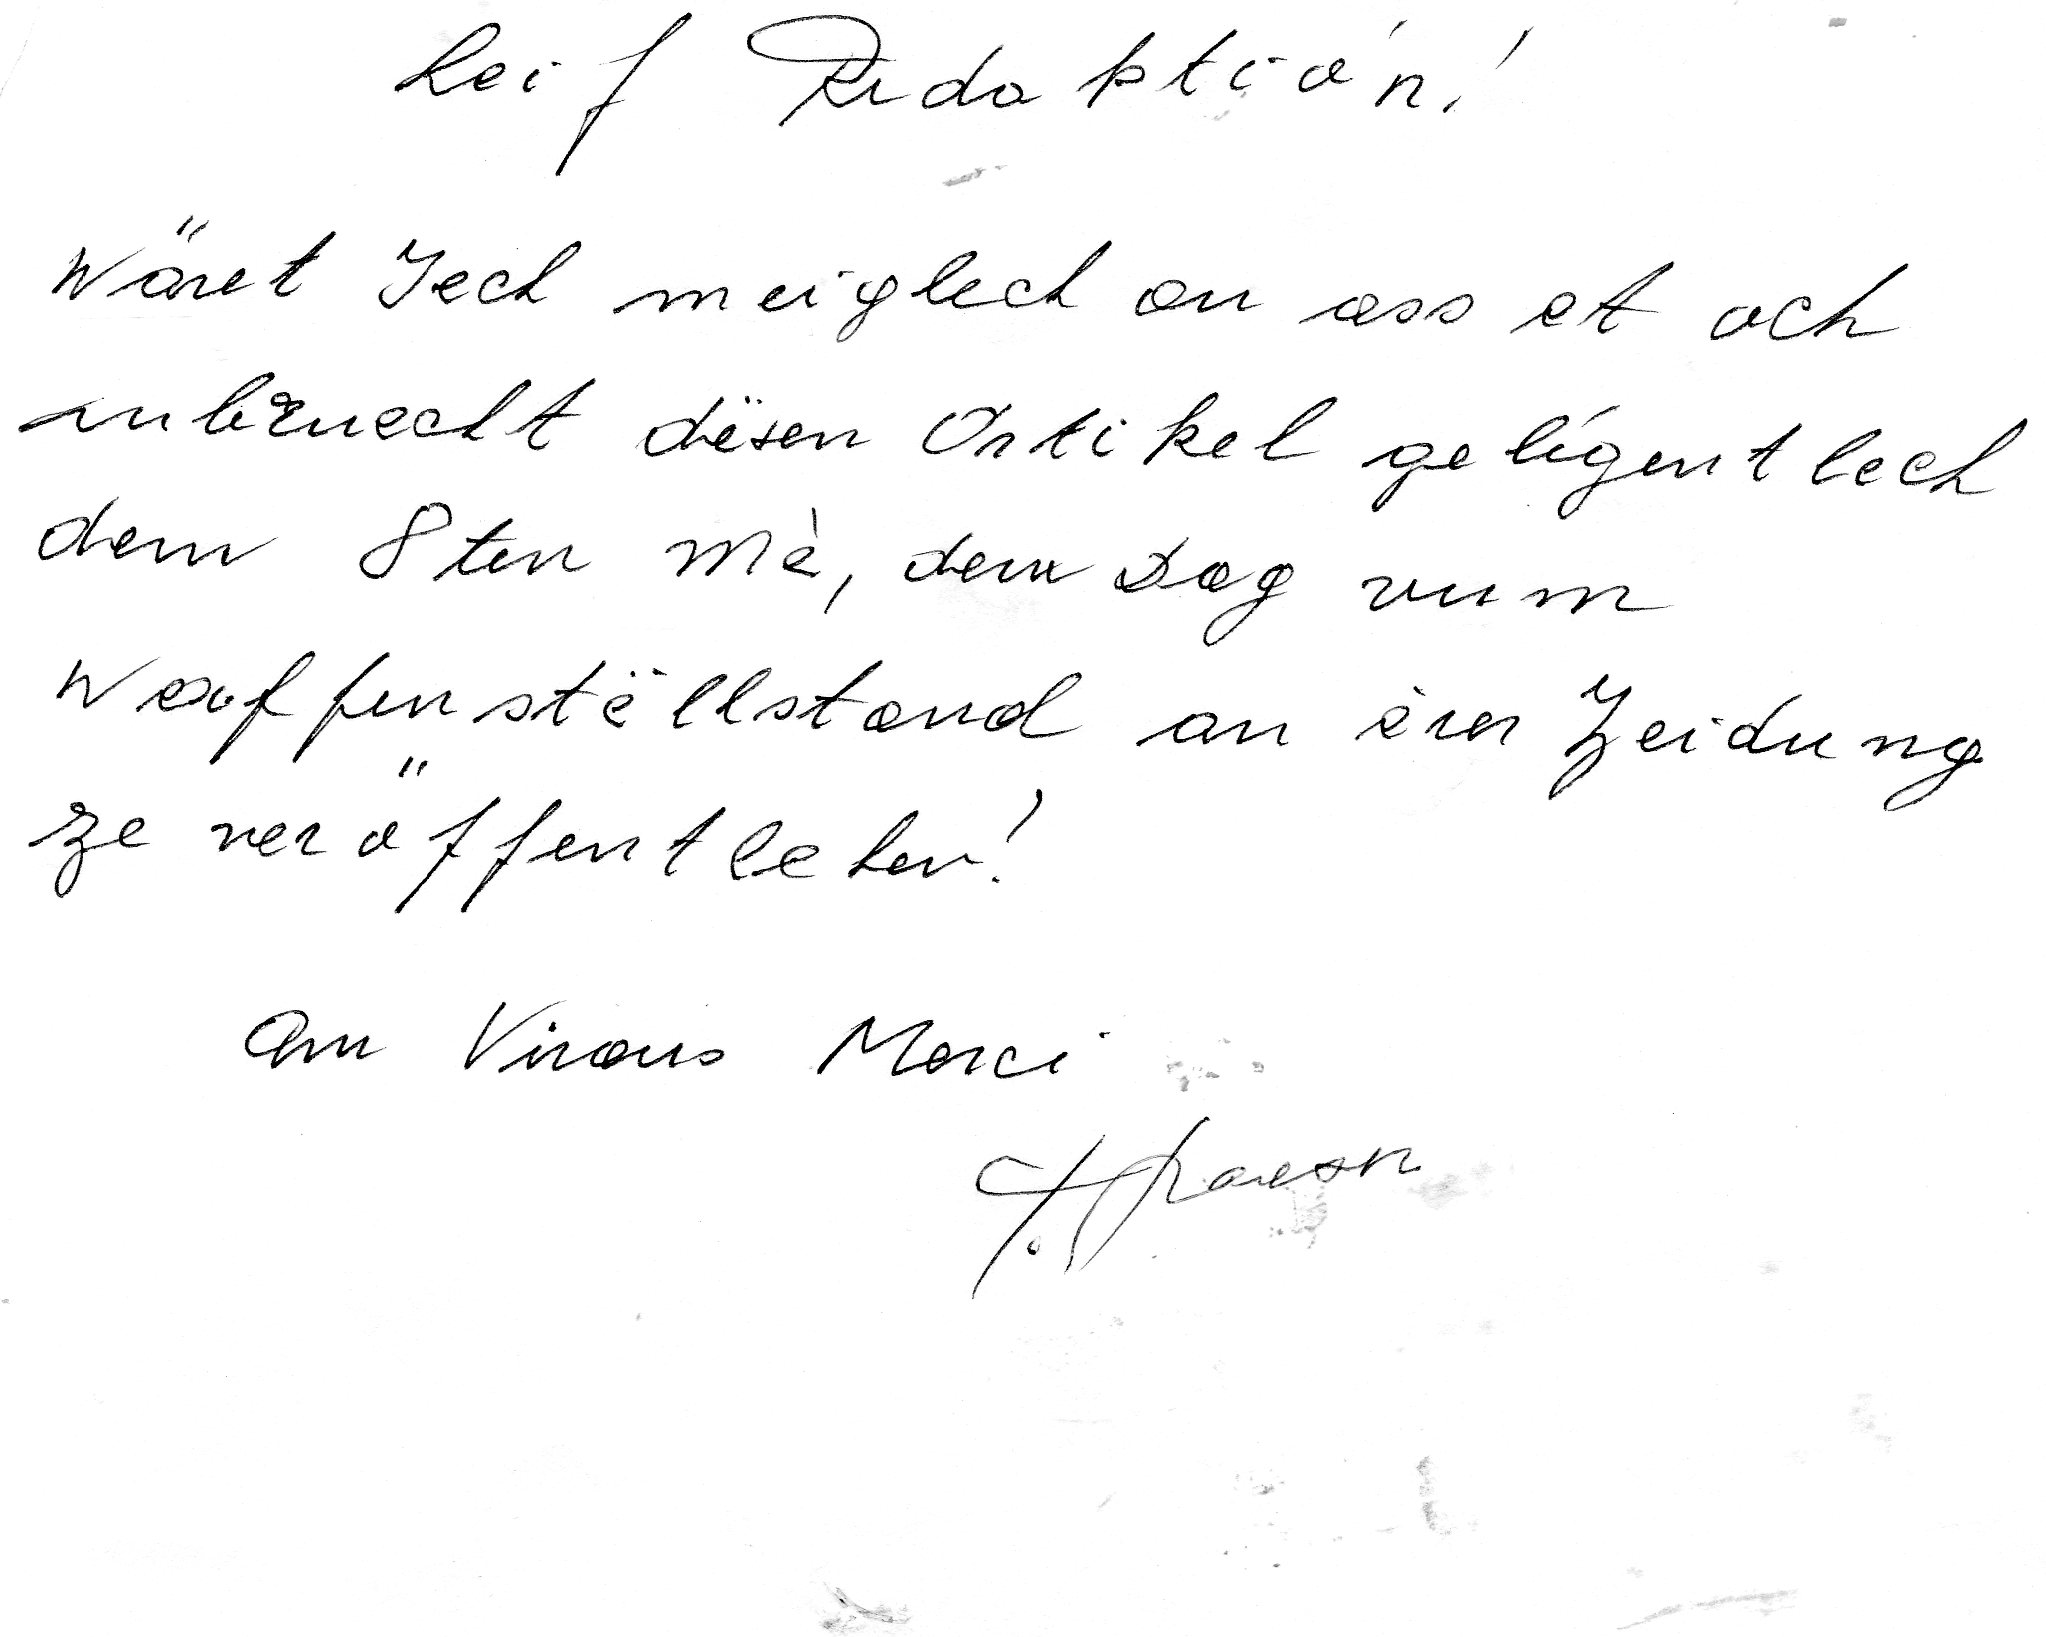 Leif Redaktio'n!
Wäret Iech meiglech an ass et och
ubruecht dësen Artikel gelégentlech
dem 8ten Mè, dem Dag vum
Waffenstëllstand an èrer Zeidung
ze veröffentlechen!
Am Viraus Merci